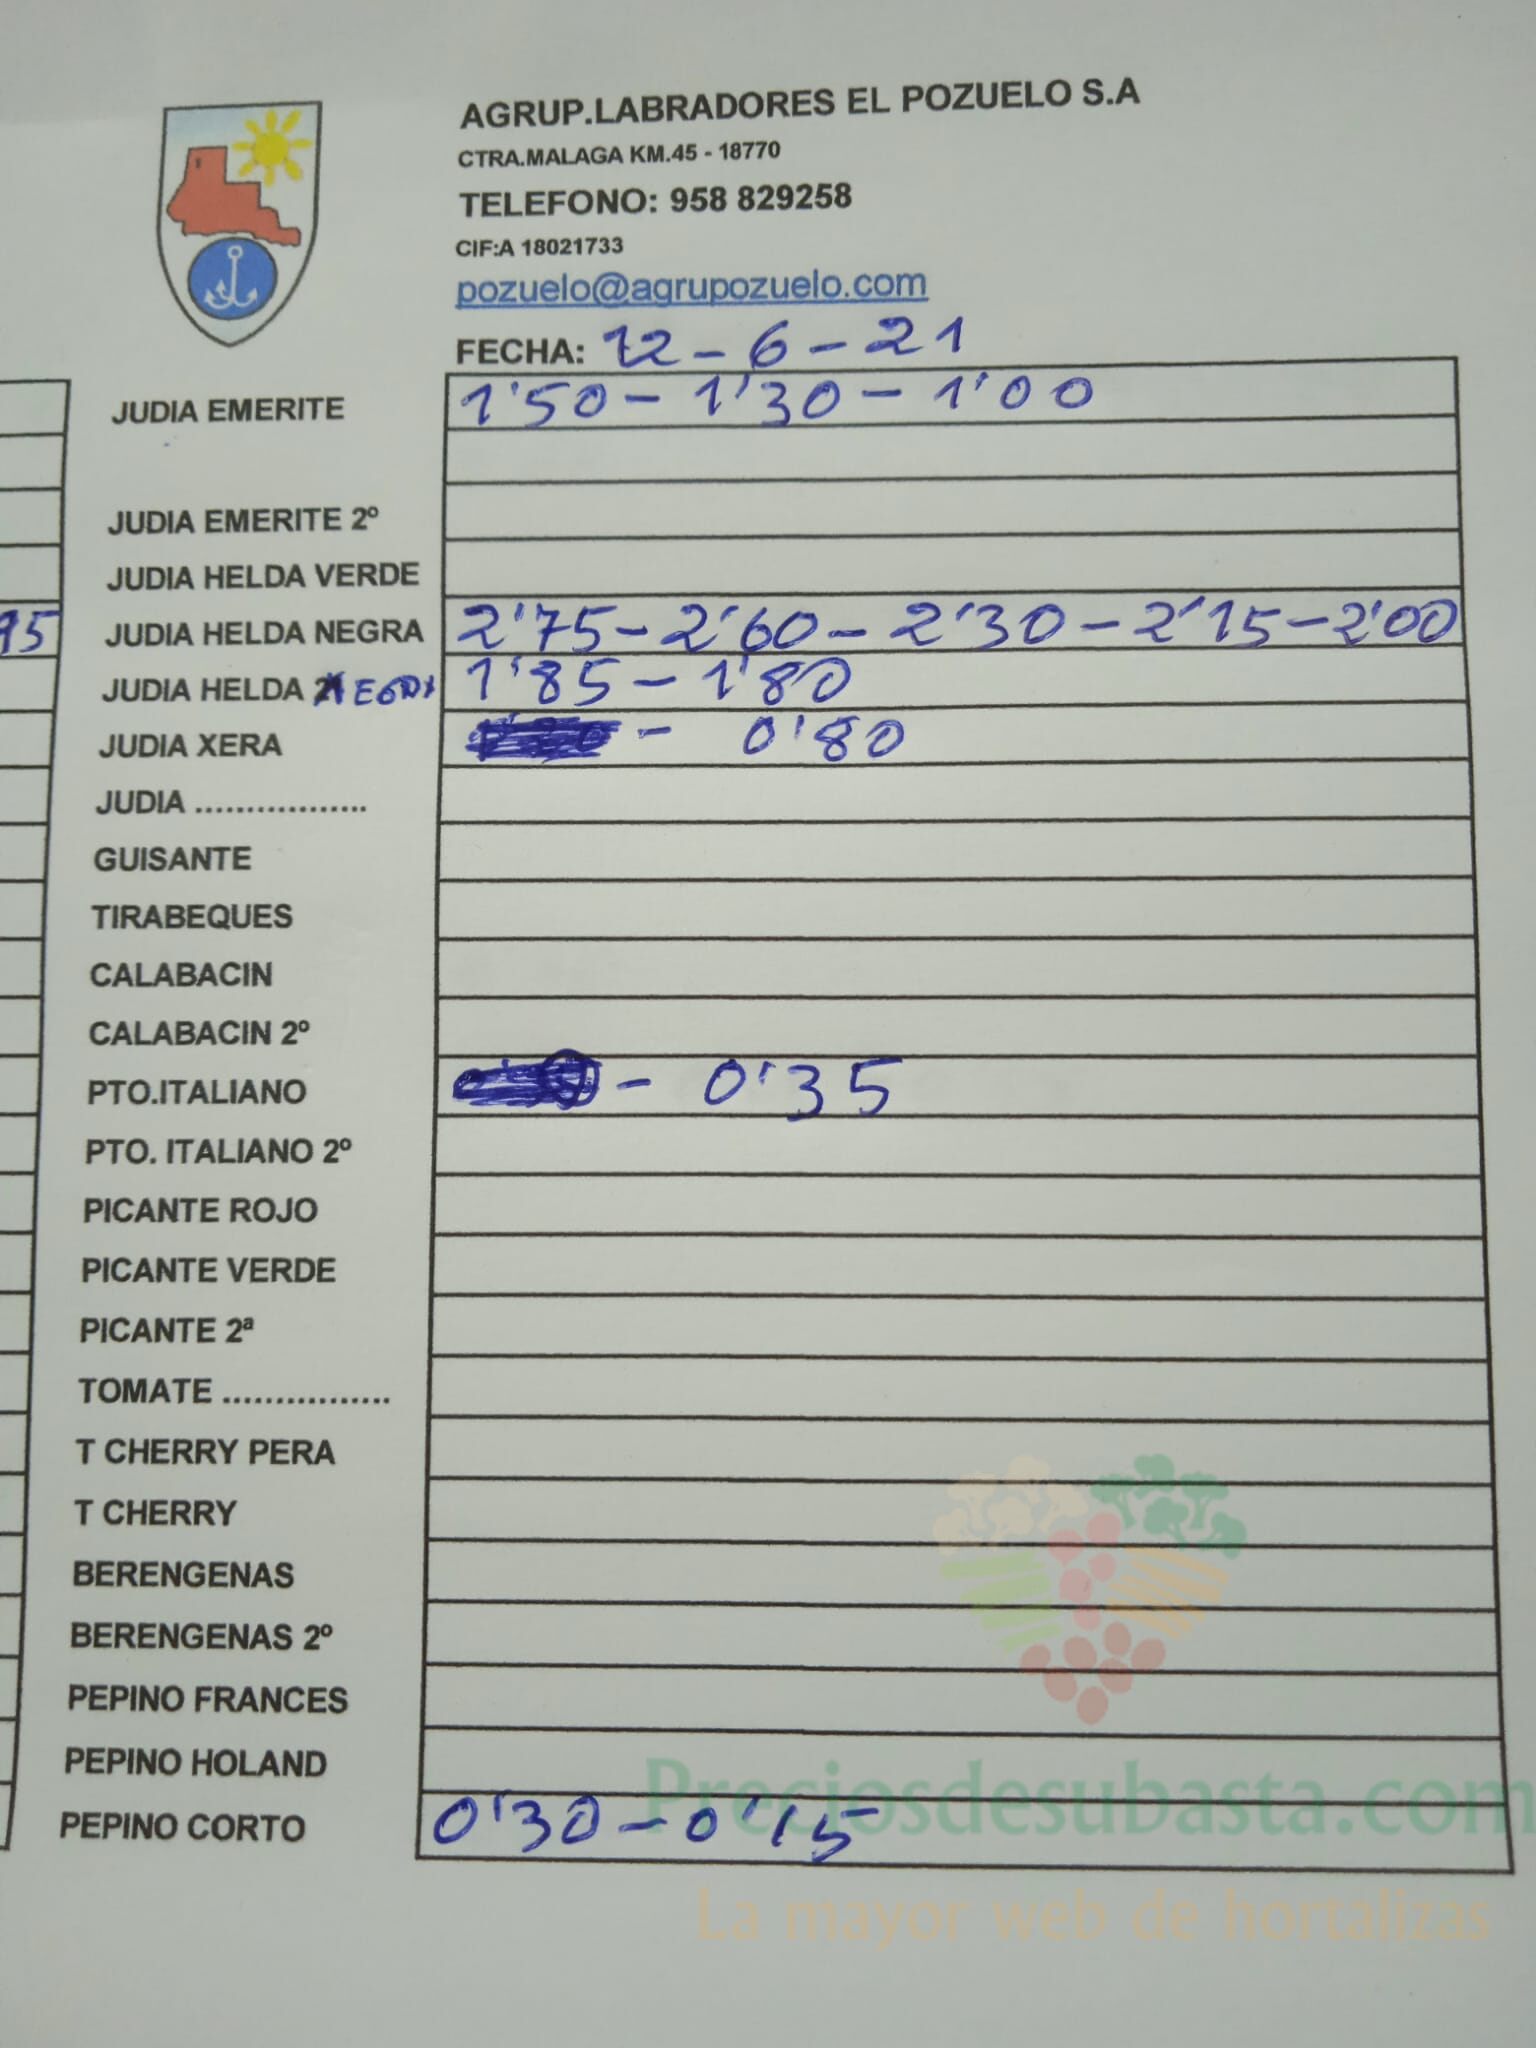 AGRUP.LABRADORES EL POZUELO S.A
CTRA.MALAGA KM.45 - 18770
TELEFONO: 958 829258
CIF:A 18021733
pozuelo@agrupozuelo.com
FECHA: 12-6-21
JUDIA EMERITE 1'50 - 1'30 - 1'00
JUDIA EMERITE 2º
JUDIA HELDA VERDE
95 JUDIA HELDA NEGRA 2'75 - 2'60 - 2'30 - 2'15 - 2'00
JUDIA HELDA 1'85 - 1'80
JUDIA XERA - 0'80
JUDIA .................
GUISANTE
TIRABEQUES
CALABACIN
CALABACIN 2º
PTO.ITALIANO - 0'35
PTO. ITALIANO 2º
PICANTE ROJO
PICANTE VERDE
PICANTE 2ª
TOMATE ................
T CHERRY PERA
T CHERRY
BERENGENAS
BERENGENAS 2º
PEPINO FRANCES
PEPINO HOLAND
PEPINO CORTO 0'30 - 0'15
Preciosdesubasta.com
La mayor web de hortalizas